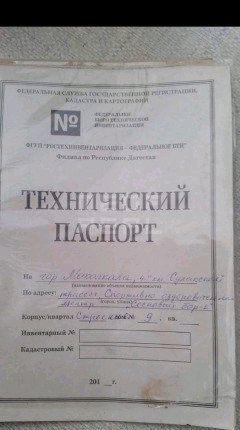 ФЕДЕРАЛЬНАЯ СЛУЖБА ГОСУДАРСТВЕННОЙ РЕГИСТРАЦИИ,
КАДАСТРА И КАРТОГРАФИИ
№
ФЕДЕРАЛЬНОЕ
БЮРО ТЕХНИЧЕСКОЙ
ИНВЕНТАРИЗАЦИИ
ФГУП «РОСТЕХИНВЕНТАРИЗАЦИЯ - ФЕДЕРАЛЬНОЕ БТИ»
Филиал по Республике Дагестан
ТЕХНИЧЕСКИЙ
ПАСПОРТ
На гор Махачкала, 4ый км. Сулакской
(наименование объекта недвижимости)
По адресу: трассы, Спортивно оздоровительный
(город, улица)
Сосновый бор
Корпус/квартал 9. кв.
Инвентарный №
Кадастровый №
201 г.